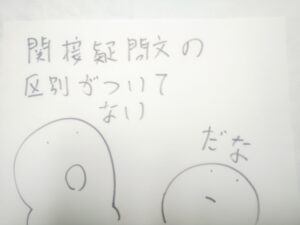 関接疑問文の
区別がついて
ない
だな